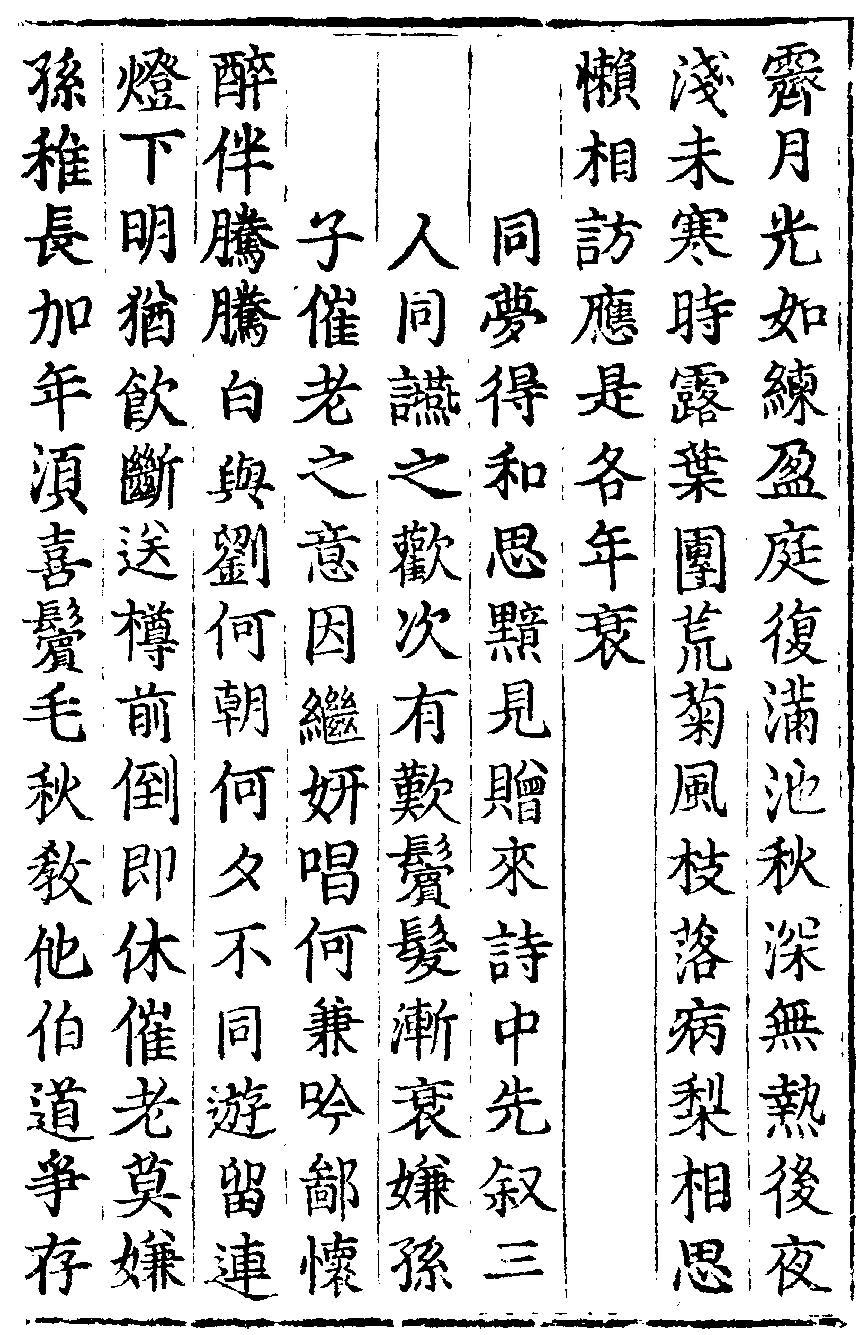 霽月光如練盈庭復滿池秋深無熱後夜
淺未寒時露葉團荒菊風枝落病梨相思
懶相訪應是各年衰
同夢得和思黯見贈來詩中先叙三
人同讌之歡次有歎鬢髮漸衰嫌孫
子催老之意因繼妍唱何兼吟鄙懷
醉伴騰騰白與劉何朝何夕不同遊留連
燈下明猶飲斷送樽前倒即休催老莫嫌
孫稚長加年須喜鬢毛秋教他伯道爭存